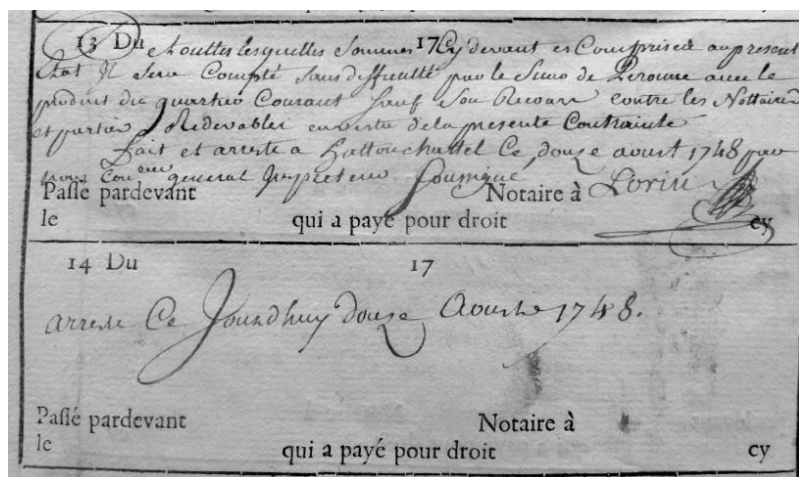 13 Du Touttes lesquelles Sommes 17 Cy devant es Comprises au present
Etat Il Sera Compté Sans difficulté par le Sieur de Peronne avec le
produit du quartier Courant Sauf Son Recours contre les Nottaires
et parties Redevables en vertu de la presente Contrainte
Fait et arresté a Hattonchastel Ce douze aoust 1748 par
nous general Inspecteur Soussigné Lorin
Passé pardevant Notaire à
le qui a payé pour droit cy
14 Du 17
arresté Ce Jourdhuy douze Aoust 1748.
Passé pardevant Notaire à
le qui a payé pour droit cy